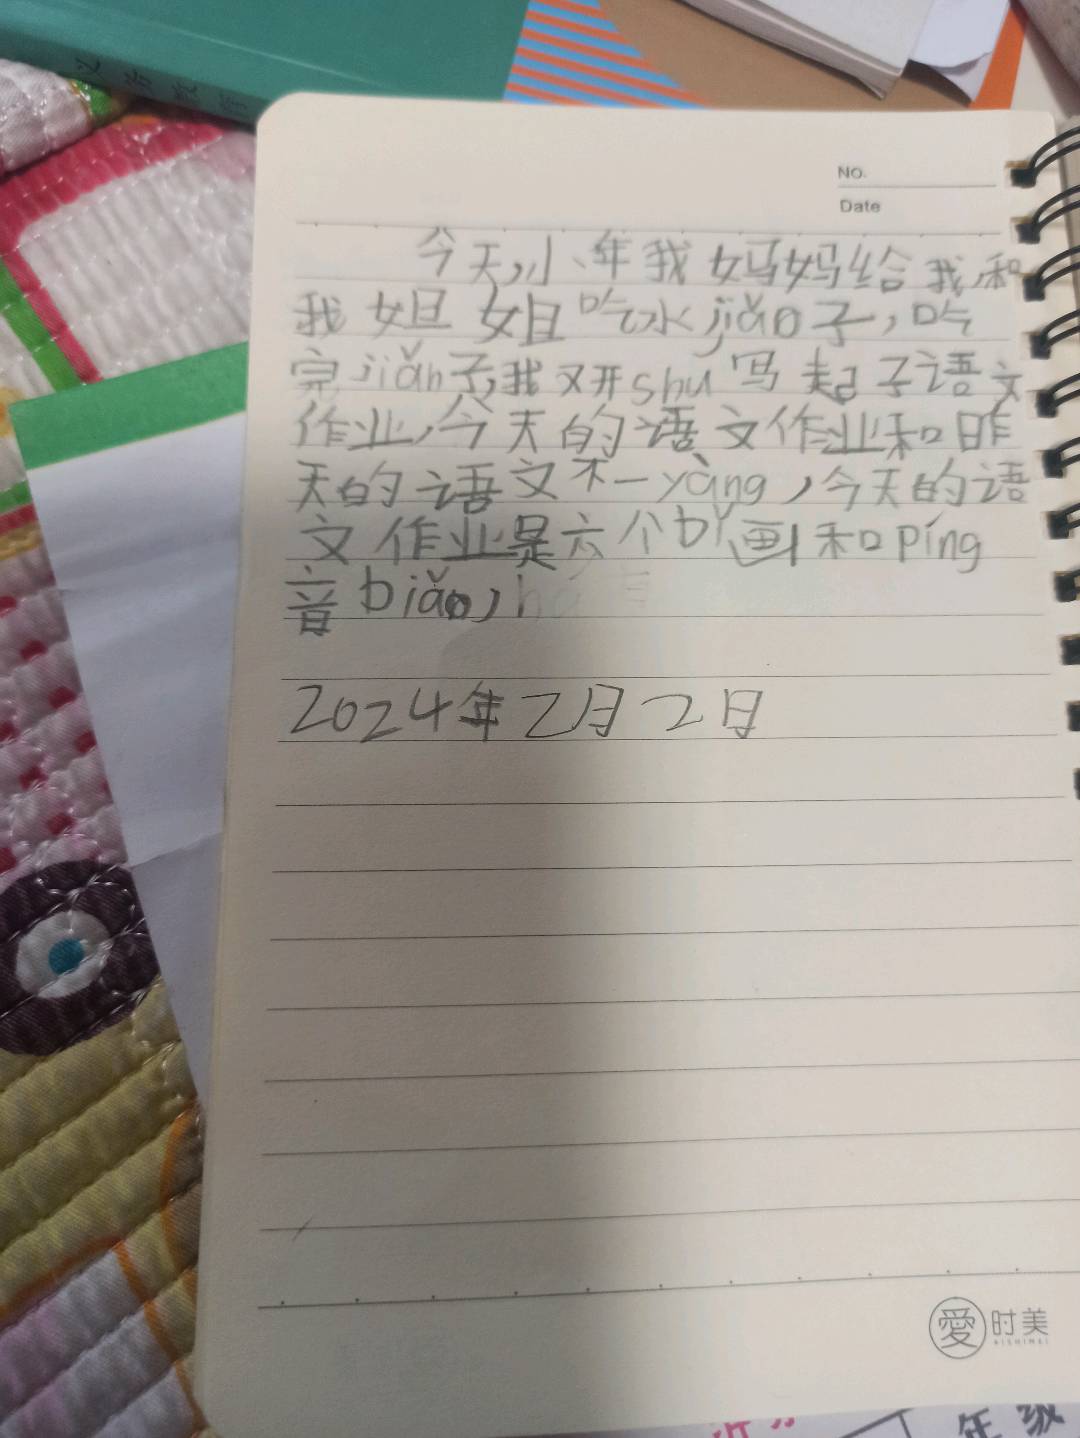 NO.
Date
今天,小年我妈妈给我和
我姐姐吃水jiǎo子,吃
完jiǎn子,我又开shu写起了语文
作业,今天的语文作业和昨
天的语文不一yàng,今天的语
文作业是六个bǐ画和píng
音biǎo,
2024年2月2日
愛时美
AISHIMEI
年级